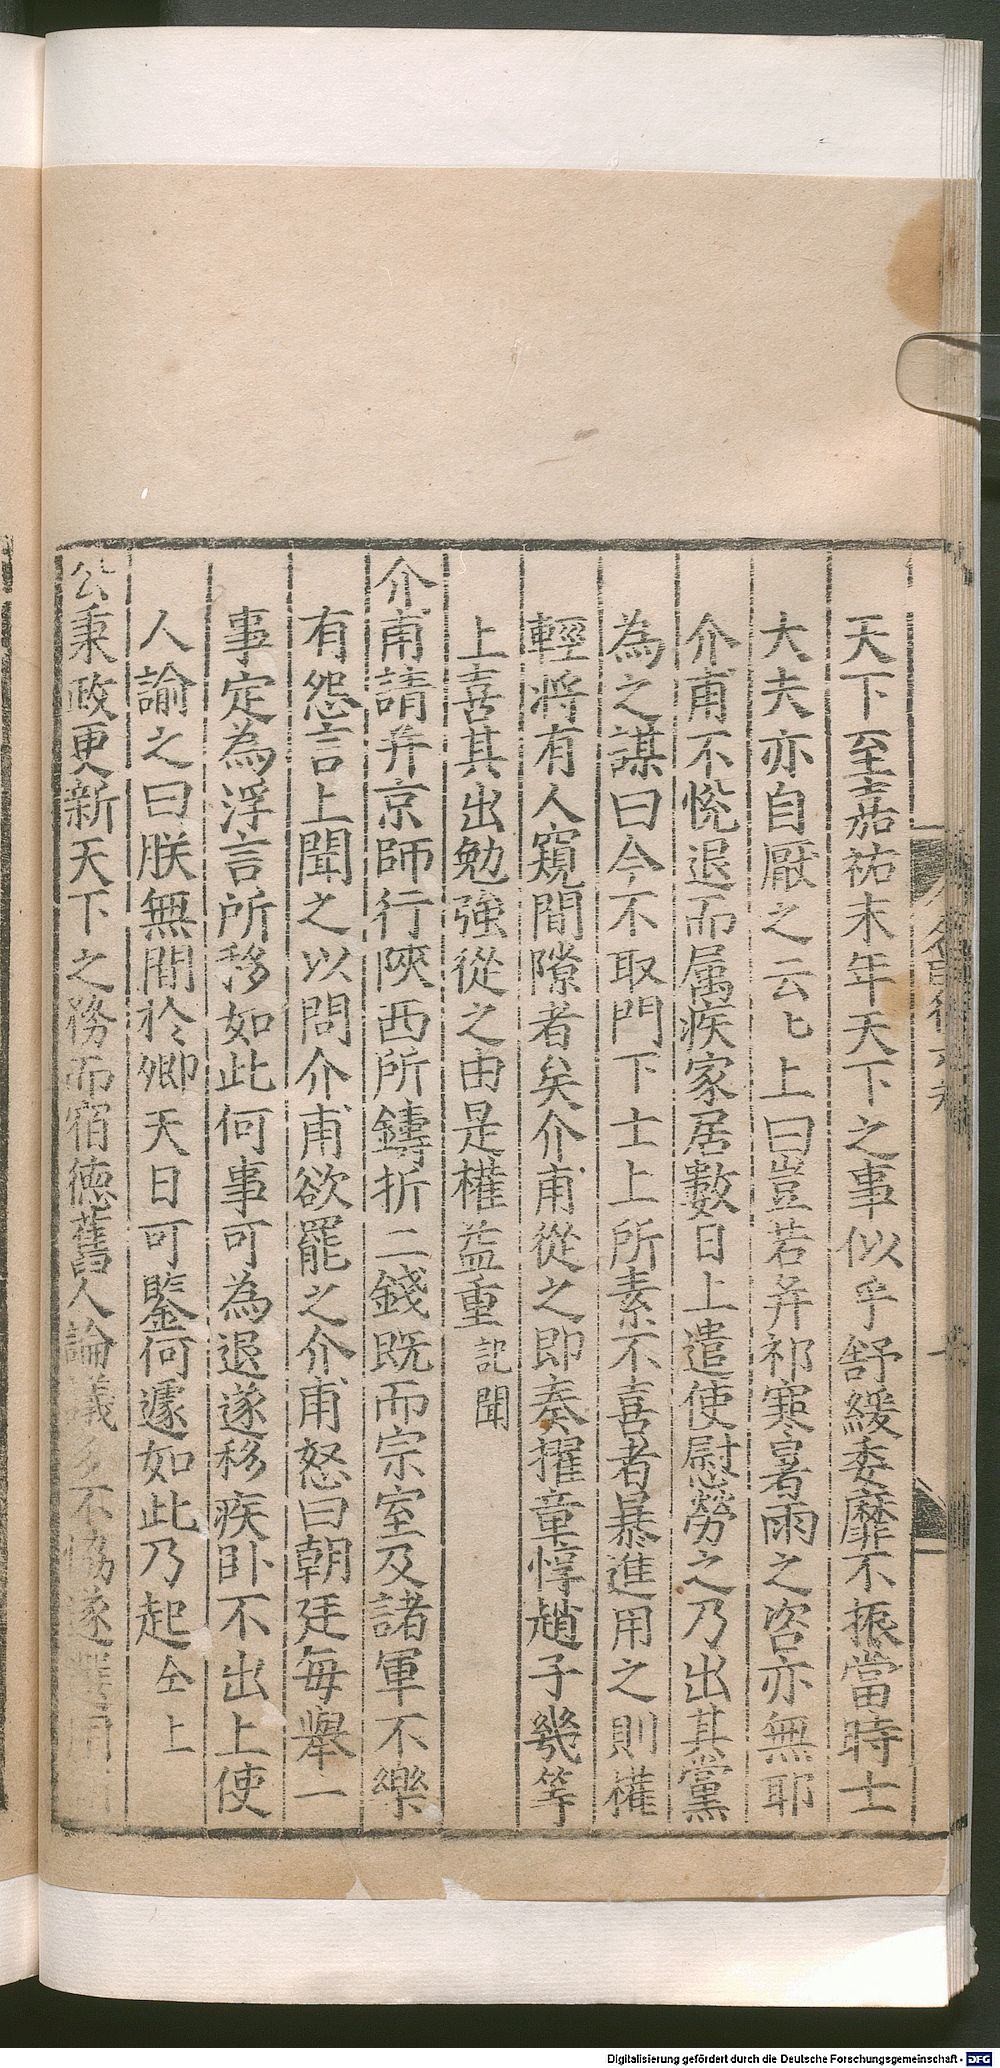 天下至嘉祐末年天下之事似乎舒緩委靡不振當時士
大夫亦自厭之云匕上曰豈若并祁寒暑雨之咨亦無耶
介甫不悅退而属疾家居數日上遣使慰勞之乃出其黨
為之謀曰今不取門下士上所素不喜者暴進用之則權
輕將有人窺間隙者矣介甫從之即奏擢章惇趙子幾等
上喜其出勉強從之由是權益重記聞
介甫請并京師行陝西所鑄折二錢既而宗室及諸軍不樂
有怨言上聞之以問介甫欲罷之介甫怒曰朝廷每舉一
事定為浮言所移如此何事可為退遂移疾臥不出上使
人諭之曰朕無間於卿天日可鑒何遽如此乃起仝上
公秉政更新天下之務而宿徳舊人論議多不恊遂選用
Digitalisierung gefördert durch die Deutsche Forschungsgemeinschaft - DFG